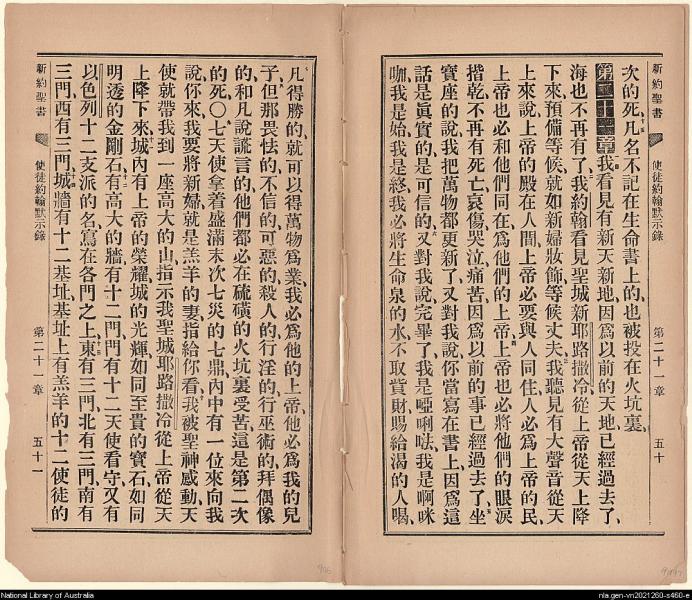 新約聖書 使徒約翰默示錄 第二十一章 五十
次的死、凡名不記在生命書上的、也被投在火坑裏、
第二十一章我看見有新天新地、因爲以前的天地已經過去了、
海也不再有了、我約翰看見聖城新耶路撒冷從上帝從天上降
下來、預備等候、就如新婦妝飾、等候丈夫、我聽見有大聲音從天
上來說、上帝的殿在人間、上帝必要與人同住、人必爲上帝的民、
上帝也必和他們同在、爲他們的上帝、上帝也必將他們的眼淚
揩乾、不再有死亡、哀傷、哭泣、痛苦、因爲以前的事已經過去了、坐
寶座的說、我把萬物都更新了、又對我說、你當寫在書上、因爲這
話是眞實的、是可信的、又對我說、完畢了、我是啞唎𠯿、我是啊咪
㗎、我是始、我是終、我必將生命泉的水、不取貲財、賜給渴的人喝、
凡得勝的、就可以得萬物爲業、我必爲他的上帝、他必爲我的兒
子、但那畏怯的、不信的、可惡的、殺人的、行淫的、行巫術的、拜偶像
的、和凡說謊言的、他們都必在硫磺的火坑裏受苦、這是第二次
的死、〇七天使拿着盛滿末次七災的七鼎、內中有一位來向我
說、你來、我要將新婦、就是羔羊的妻、指給你看、我被聖神感動、天
使就帶我到一座高大的山、指示我聖城耶路撒冷、從上帝從天
上降下來、城內有上帝的榮耀、城的光輝、如同至貴的寶石、如同
明透的金剛石、有高大的牆、有十二門、門有十二天使看守、又有
以色列十二支派的名、寫在各門之上、東有三門、北有三門、南有
三門、西有三門、城牆有十二基址、基址上有羔羊的十二使徒的
新約聖書 使徒約翰默示錄 第二十一章 五十一
National Library of Australia
nla.gen-vn2021260-s460-e